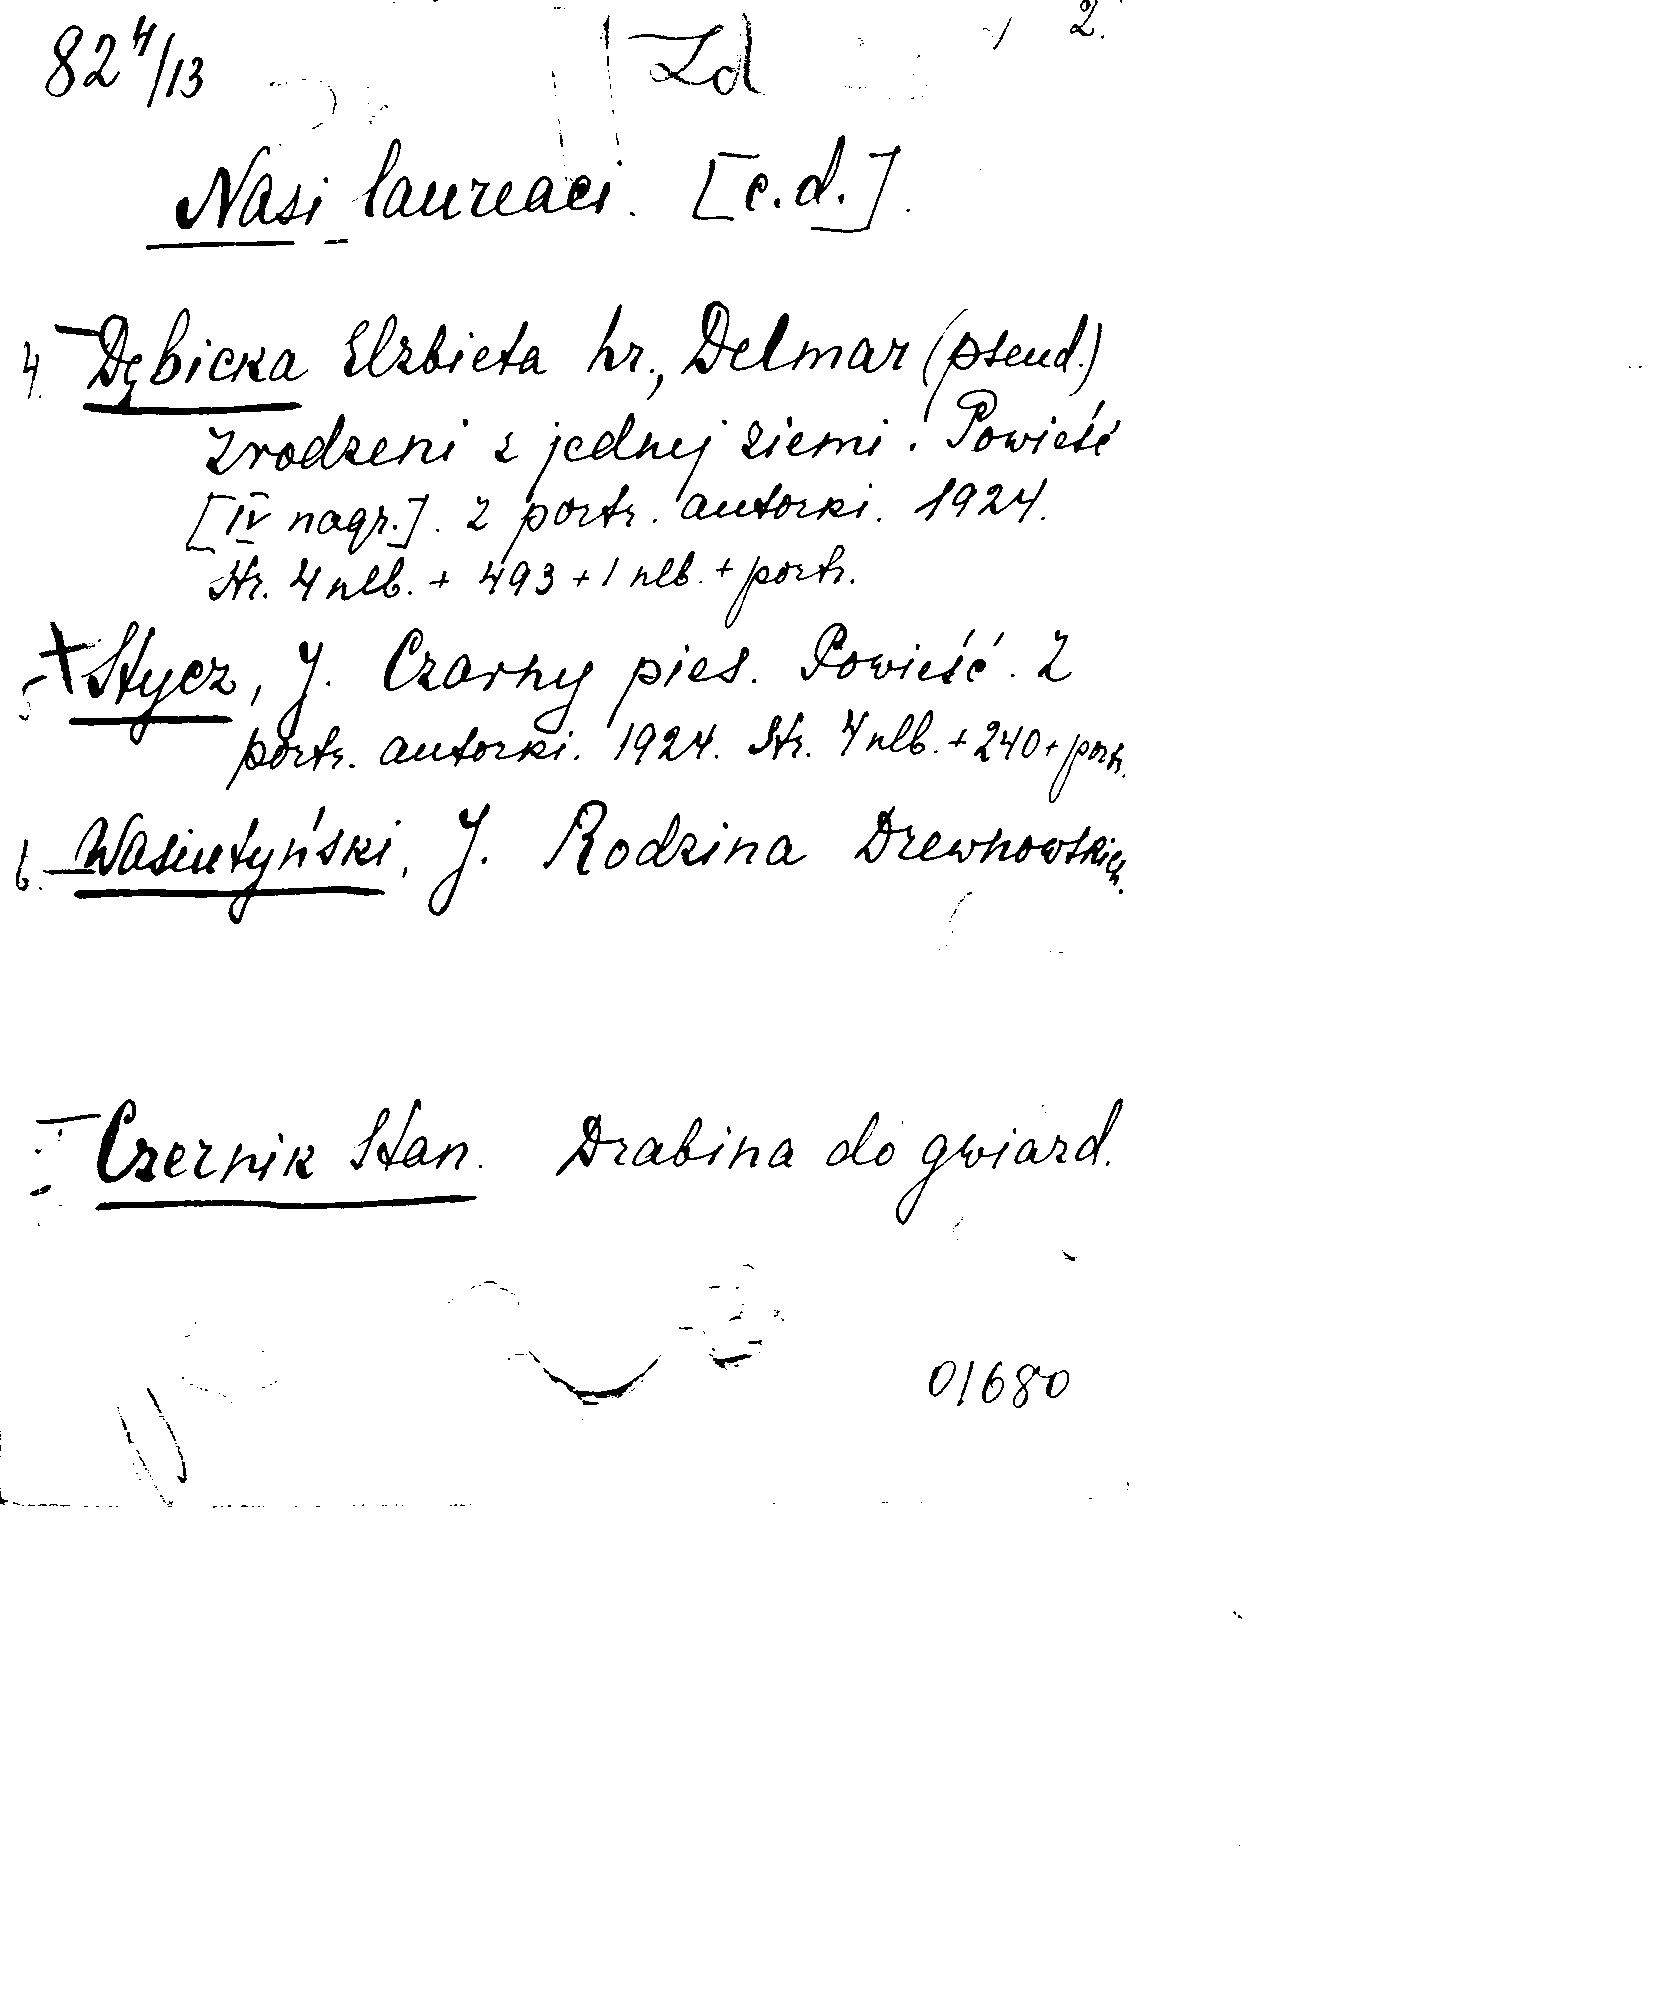 82 4/13 Zd 2.
Nasi laureaci. [c.d.].
4. Dębicka Elzbieta hr., Delmar (pseud.)
Zrodzeni z jednej ziemi. Powieść
[IV nagr.]. Z portr. autorki. 1924.
Str. 4 nlb. + 493 + 1 nlb. + portr.
5. + Stycz, J. Czarny pies. Powieść. Z
portr. autorki. 1924. Str. 4 nlb. + 240 + portr.
6. Wasiutyński, J. Rodzina Drewnowskich.
Czernik Stan. Drabina do gwiazd.
01680